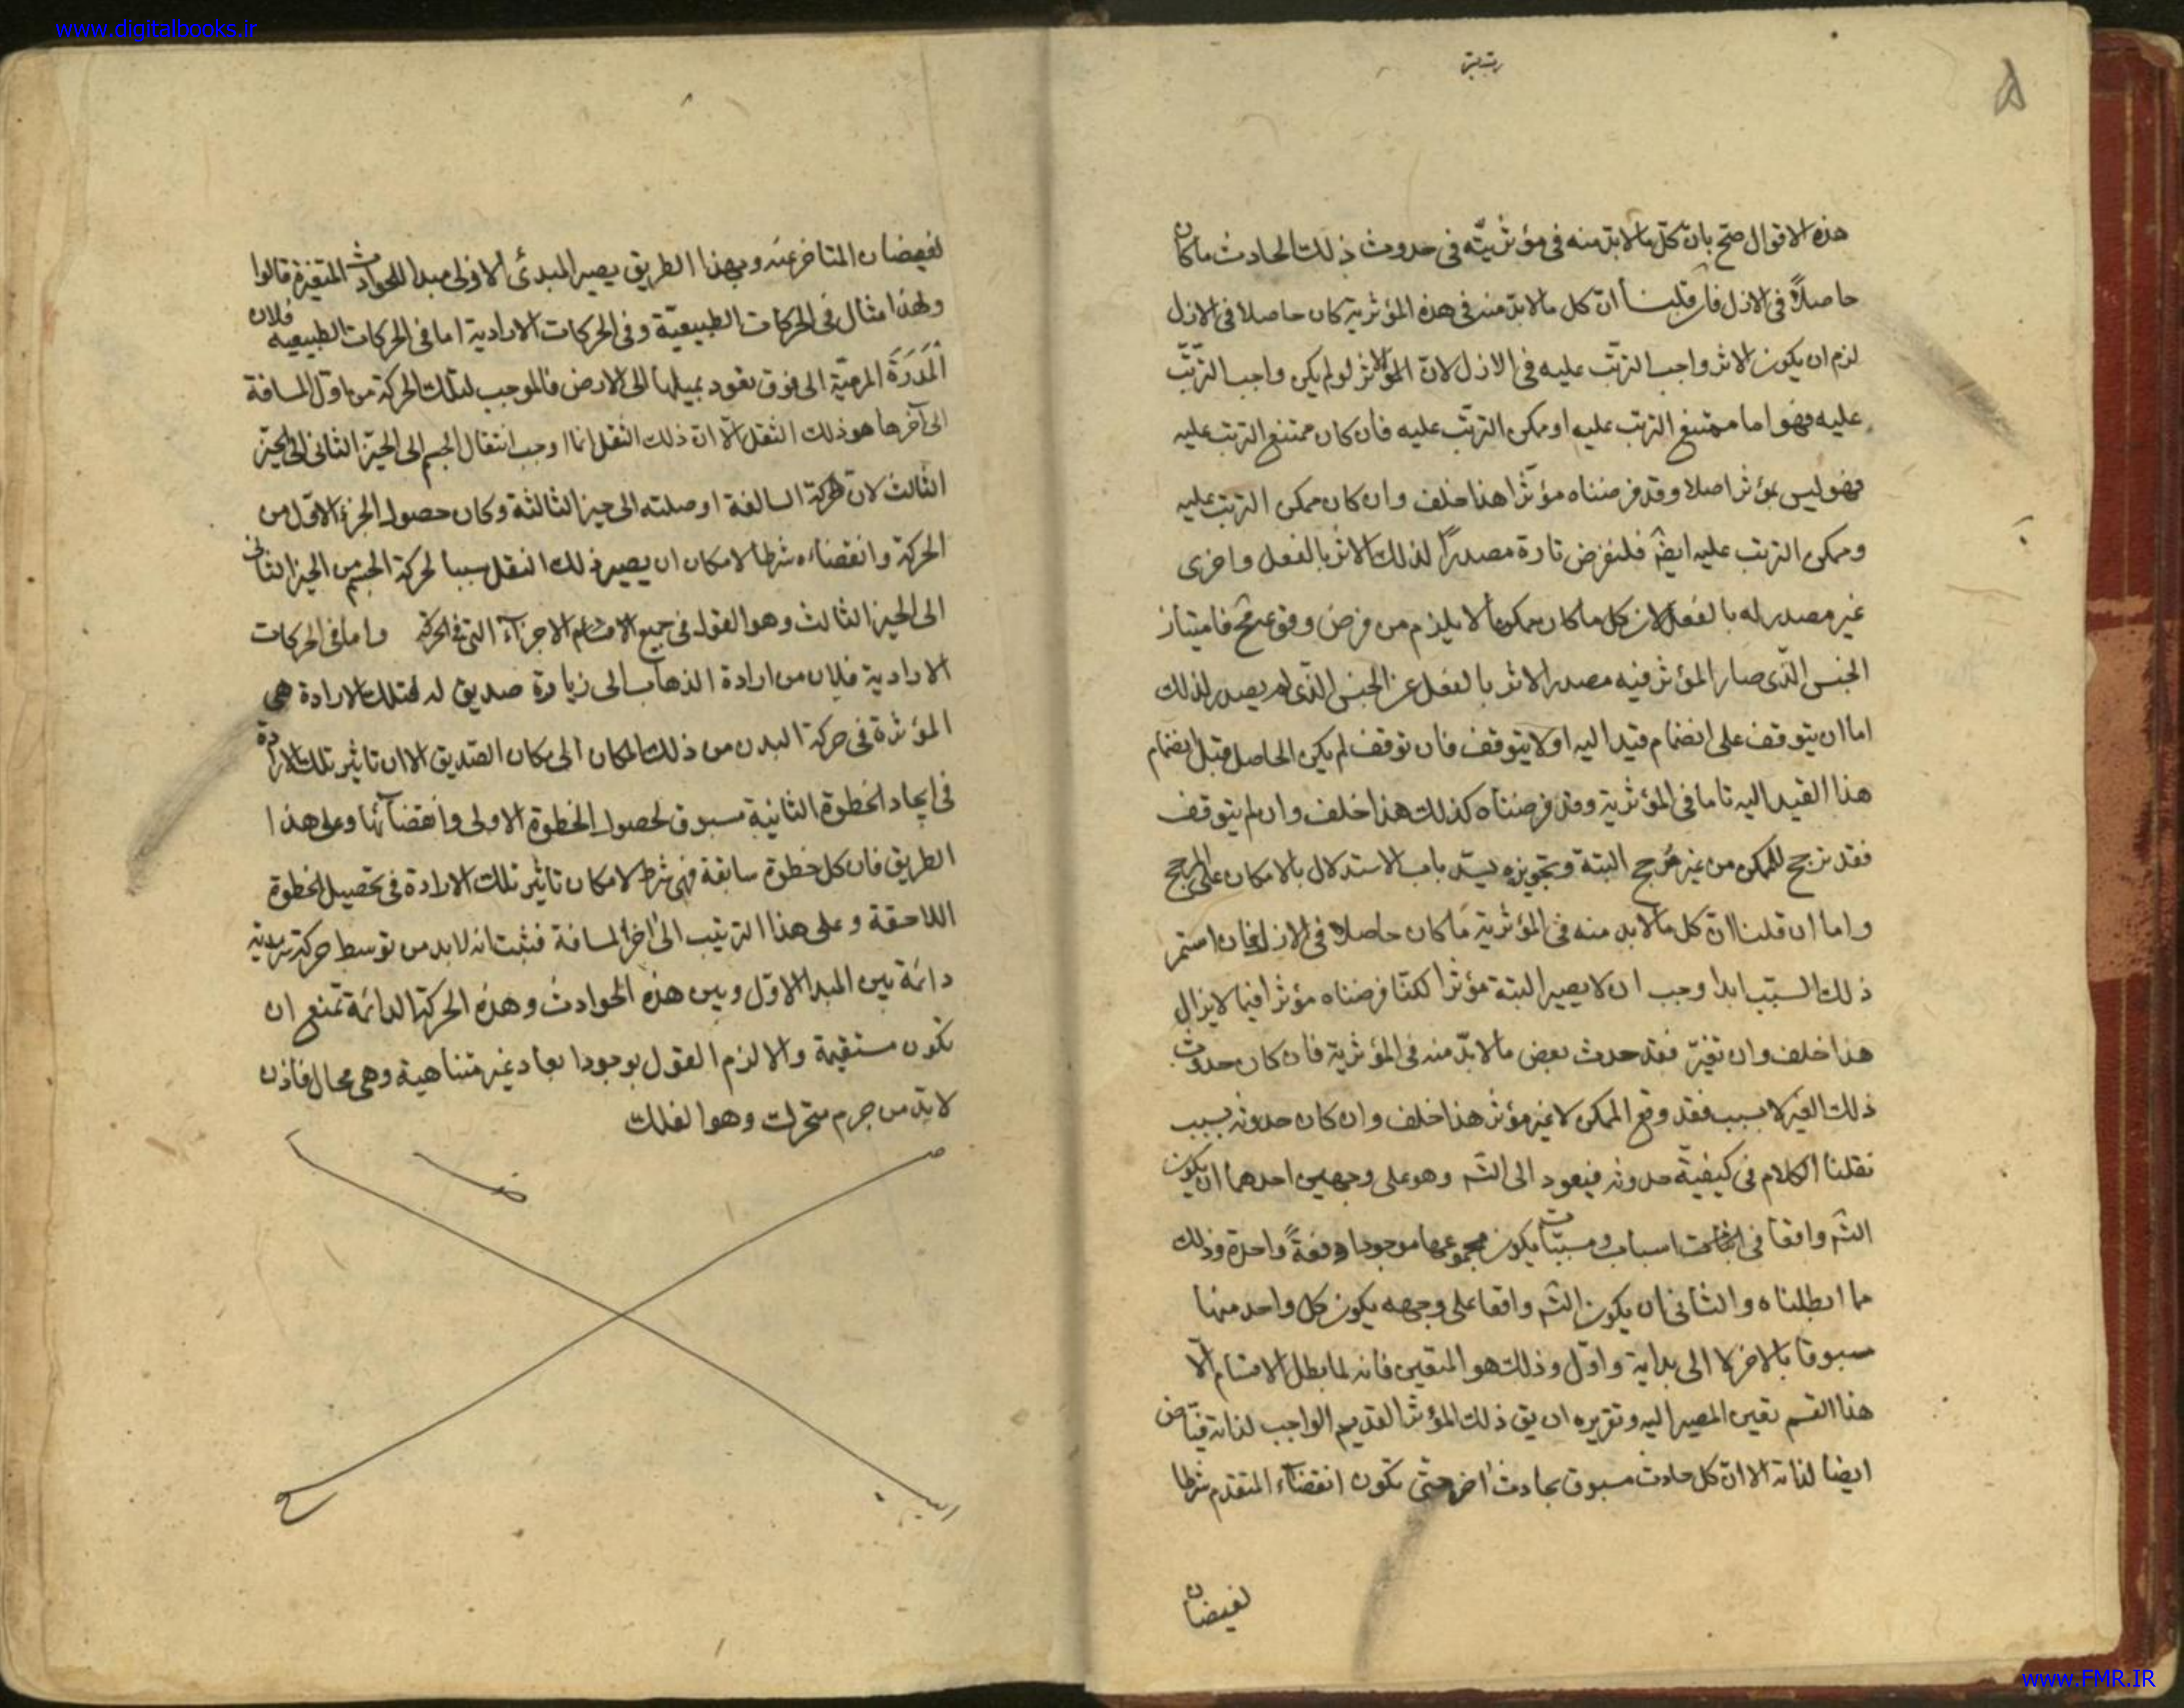 www.digitalbooks.ir
هذه الاقوال صح بان كل ما لابد منه فى مؤثريته فى حدوث ذلك الحادث ما كان
حاصلاً فى الازل فان قلنا ان كل ما لابد منه فى هذه المؤثرية كان حاصلا فى الازل
لزم ان يكون الاثر واجب الترتّب عليه فى الازل لان المؤثر لو لم يكن واجب الترتّب
عليه فهو اما ممتنع الترتب عليه او ممكن الترتّب عليه فان كان ممتنع الترتب عليه
فهو ليس بمؤثر اصلا وقد فرضناه مؤثرا هذا خلف وان كان ممكن الترتب عليه
وممكن الترتب عليه ايضا فلنفرض تارة مصدراً لذلك الاثر بالفعل واخرى
غير مصدر له بالفعل لان كل ما كان ممكنا لا يلزم من فرض وقوعه مح فامتياز
الحين الّذى صار المؤثر فيه مصدر الاثر بالفعل عن الحين الّذى لم يصدر لذلك
اما ان يتوقف على انضمام قيد اليه او لا يتوقف فان توقف لم يكن الحاصل قبل انضمام
هذا القيد اليه تاما فى المؤثرية وقد فرضناه كذلك هذا خلف وان لم يتوقف
فقد ترجح الممكن من غير مُرجح البتة وتجويزه يسد باب الاستدلال بالامكان على المرجح
واما ان قلنا ان كل ما لابد منه فى المؤثرية ما كان حاصلا فى الازل فان استمر
ذلك السبب ابدا وجب ان لا يصير البتة مؤثرا لكنّا فرضناه مؤثرا فيما لا يزال
هذا خلف وان تغيّر فقد حدث بعض ما لابدّ منه فى المؤثرية فان كان حدوث
ذلك الغير لا بسبب فقد وقع الممكن لا عن مؤثر هذا خلف وان كان حدوثه بسبب
نقلنا الكلام فى كيفية حدوثه فيعود الى التس وهو على وجهين احدهما ان يكون
التس واقعا فى اسباب ومسببات يكون مجموعها موجودا دفعةً واحدة وذلك
مما ابطلناه والثانى ان يكون التس واقعا على وجهه يكون كل واحد منها
مسبوقا بالاخر لا الى بداية واوّل وذلك هو المتعين فانه لما بطل الاقسام الا
هذا القسم تعين المصير اليه وتقريره ان يق ذلك المؤثر القديم الواجب لذاته فيّاض
ايضا لذاته الا ان كل حادث مسبوق بحادث اخر حتى يكون انقضاء المتقدم شرطا
لفيضان
لفيضان المتاخر عنه وبهذا الطريق يصير المبدئ الاولى مبدا للحوادث المتغيرة قالوا
ولهذا مثال فى الحركات الطبيعيّة وفى الحركات الارادية اما فى الحركات الطبيعيه فلان
المَدَرَة المرميّة الى فوق تعود بميلها الى الارض فالموجب لتلك الحركة من اول المسافة
الى آخرها هو ذلك الثقل الا ان ذلك الثقل انما اوجب انتقال الجسم الى الحيّز الثانى الى الحيّز
الثالث لان الحركة السالفة اوصلته الى حيز الثالثة وكان حصول الجزء الاوّل من
الحركة وانقضاءه شرطا لامكان ان يصير ذلك الثقل سببا لحركة الجسم من الحيز الثانى
الى الحيز الثالث وهو القول فى جميع الاقسام الاجزاء التى فى الحركة واما فى الحركات
الارادية فلان من ارادة الذهاب الى زيارة صديق له فتلك الارادة هى
المؤثرة فى حركة البدن من ذلك المكان الى مكان الصّديق الا ان تاثير تلك الارادة
فى ايجاد الخطوة الثانية مسبوق لحصول الخطوة الاولى وانقضائها وعلى هذا
الطريق فان كل خطوة سابقة فهى شرط لامكان تاثير تلك الارادة فى تحصيل الخطوة
اللاحقة وعلى هذا الترتيب الى اخر المسافة فثبت انه لابد من توسط حركة سرمدية
دائمة بين المبدا الاوّل وبين هذه الحوادث وهذه الحركة الدائمة تمنع ان
تكون مستقيمة والا لزم القول بوجود ابعاد غير متناهية وهى محال فاذن
لابدّ من جرم متحرك وهو الفلك
www.FMR.IR